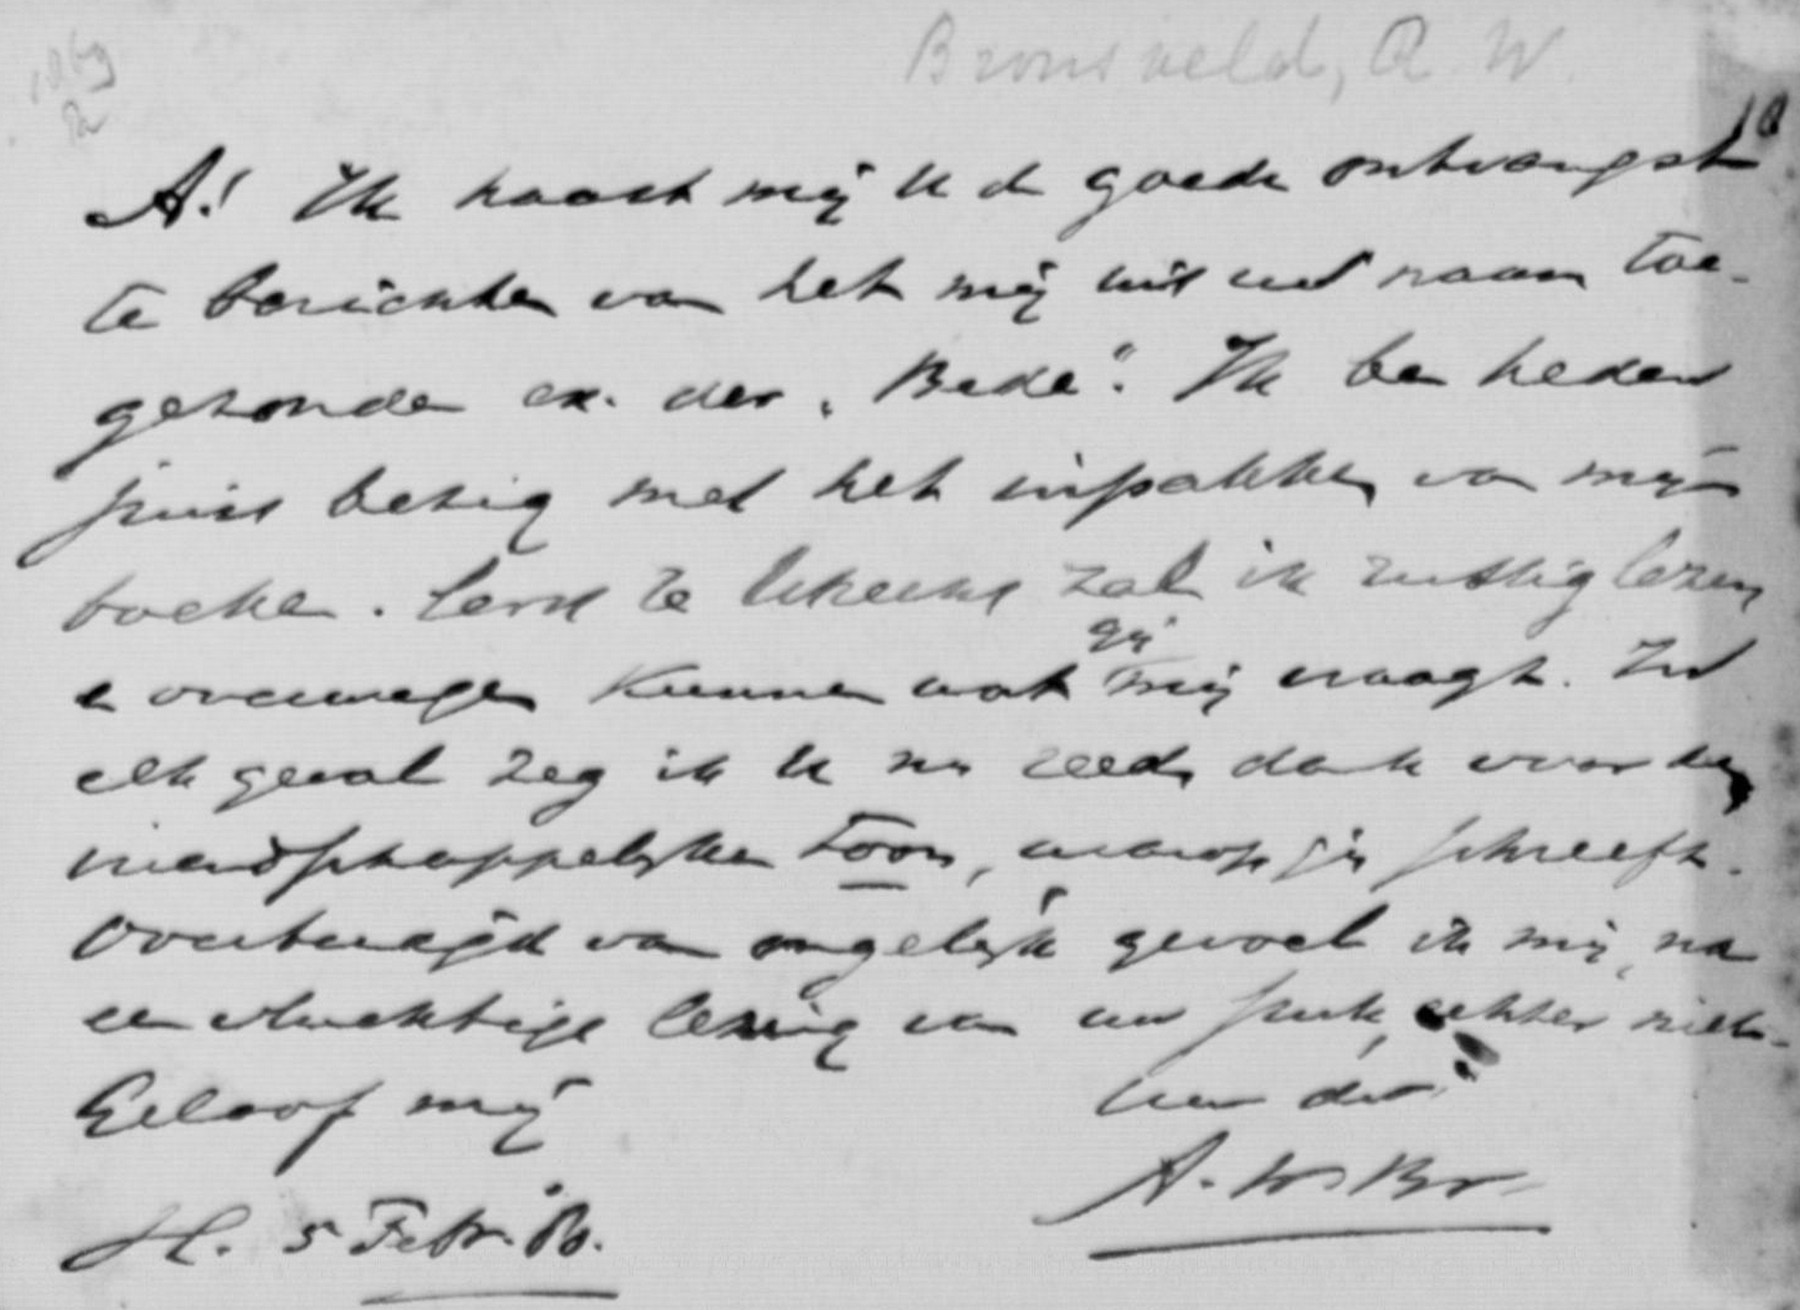 Bronsveld, A W.
10
A.! Ik haast mij U de goede ontvangst
te berichten van het mij uit uw naam toe-
gezonden ex. der „Bede". Ik ben heden
juist bezig met het inpakken van mijn
boeken. Eerst te Utrecht zal ik rustig lezen
gij
en overwegen kunnen wat mij vraagt. In
elk geval zeg ik U nu reeds dank voor den
vriendschappelijken toon, waarop gij schreeft.
Overtuigd van ongelijk gevoel ik mij, na
een vluchtige lezing van uw stuk, echter niet.
Geloof mij
Uw dr
A. W. Br.
H. 5 Febr. 80.